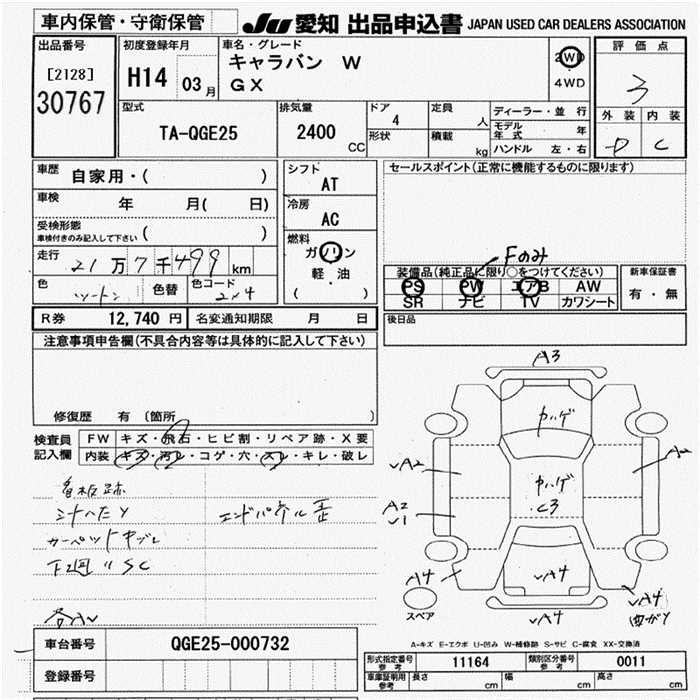 車内保管・守衛保管
JU 愛知 出品申込書 JAPAN USED CAR DEALERS ASSOCIATION
出品番号
[2128]
30767
初度登録年月
H14 03月
車名・グレード
キャラバン W
GX
2WD
4WD
評価点
3
外装 内装
D C
型式
TA-QGE25
排気量
2400
CC
ドア
4
形状
定員
人
積載
kg
ディーラー・並行
モデル年式 年
ハンドル 左・右
車歴
自家用・( )
車検
年 月( 日)
受検形態
車検付きのみ記入して下さい ( )
走行
21万7千499km
色
ツートン
色替
色コード
2×4
シフト
AT
冷房
AC
燃料
ガソリン
軽・油
( )
セールスポイント(正常に機能するものに限ります)
Fのみ
装備品(純正品に限り○をつけてください)
PS PW エアB AW
SR ナビ TV カワシート
新車保証書
有・無
R券 12,740円
名変通知期限 月 日
後日品
注意事項申告欄(不具合内容等は具体的に記入して下さい)
修復歴 有 〔箇所 〕
検査員記入欄
FW キズ・飛石・ヒビ割・リペア跡・X要
内装 キズ・汚レ・コゲ・穴・スレ・キレ・破レ
看板跡
シートハタY
エンドパネル歪
カーペットキブレ
下廻りSC
各AV
A3
カハゲ
カハゲ
C3
A2
A2
A2
V1
A4
A4
A4
A4
曲がY
スペア
A-キズ E-エクボ U-凹み W-補修跡 S-サビ C-腐食 XX-交換済
車台番号
QGE25-000732
登録番号
形式指定番号
参考
11164
類別区分番号
参考
0011
車庫証明用
参考
長さ cm
幅 cm
高さ cm